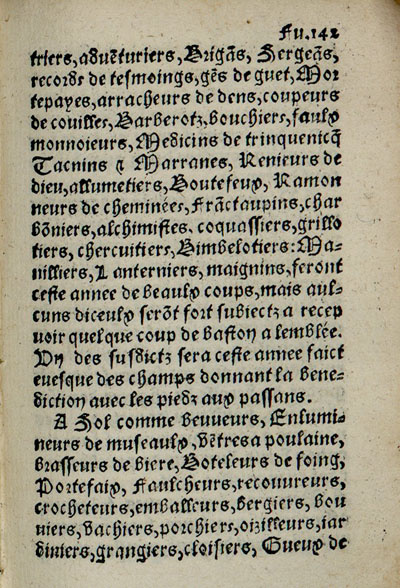 Fu.142
triers, aduẽturiers, Brigãs, Sergeãs,
records de tesmoings, gẽs de guet, Mor
tepayes, arracheurs de dens, coupeurs
de couilles, Barberotz, bouchiers, faulx
monnoieurs, Medicins de trinquenicq̃
Tacnins & Marranes, Renieurs de
dieu, allumetiers, Boutefeux, Ramon
neurs de cheminées, Frãctaupins, char
bõniers, alchimistes, coquassiers, grillo
tiers, chercuitiers, Bimbelotiers: Ma-
nilliers, Lanterniers, maignins, feront
ceste annee de beaulx coups, mais aul-
cuns diceulx serõt fort subiectz a recep
uoir quelque coup de baston a lemblée.
Vn des susdictz sera ceste annee faict
euesque des champs donnant la bene-
diction avec les piedz aux passans.
A Sol comme beuueurs, Enlumi-
neurs de museaulx, vẽtres a poulaine,
brasseurs de biere, Boteleurs de foing,
Portefaix, Faulcheurs, recouureurs,
crocheteurs, emballeurs, bergiers, bou
uiers, vachiers, porchiers, oizilleurs, iar
diniers, grangiers, cloisiers, Gueux de